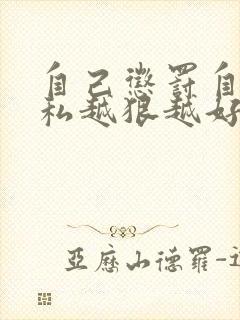 自己懲罰自
私越狠越好
亞歷山德羅-